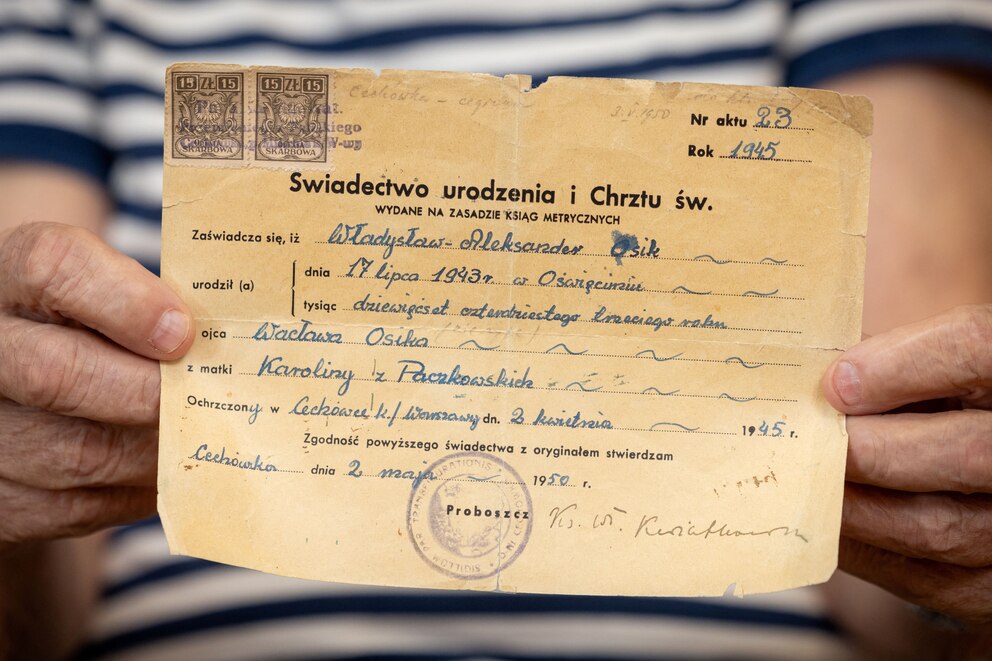 15 ZŁ 15 15 ZŁ 15
OPŁATA SKARBOWA SKARBOWA
Cechówka
3.V.1950
Nr aktu 23
Rok 1945
Świadectwo urodzenia i Chrztu św.
WYDANE NA ZASADZIE KSIĄG METRYCZNYCH
Zaświadcza się, iż Władysław-Aleksander Osik
urodził (a)
dnia 17 lipca 1943 r. w Oświęcimiu
tysiąc dziewięćset czterdziestego trzeciego roku
ojca Wacława Osika
z matki Karoliny z Paczkowskich
Ochrzczony w Cechówce k./Warszawy dn. 2 kwietnia 1945 r.
Zgodność powyższego świadectwa z oryginałem stwierdzam
Cechówka dnia 2 maja 1950 r.
Proboszcz Ks. Wł. Kwiatkowski
SIGILLUM PAR. TRANSFIGURATIONIS